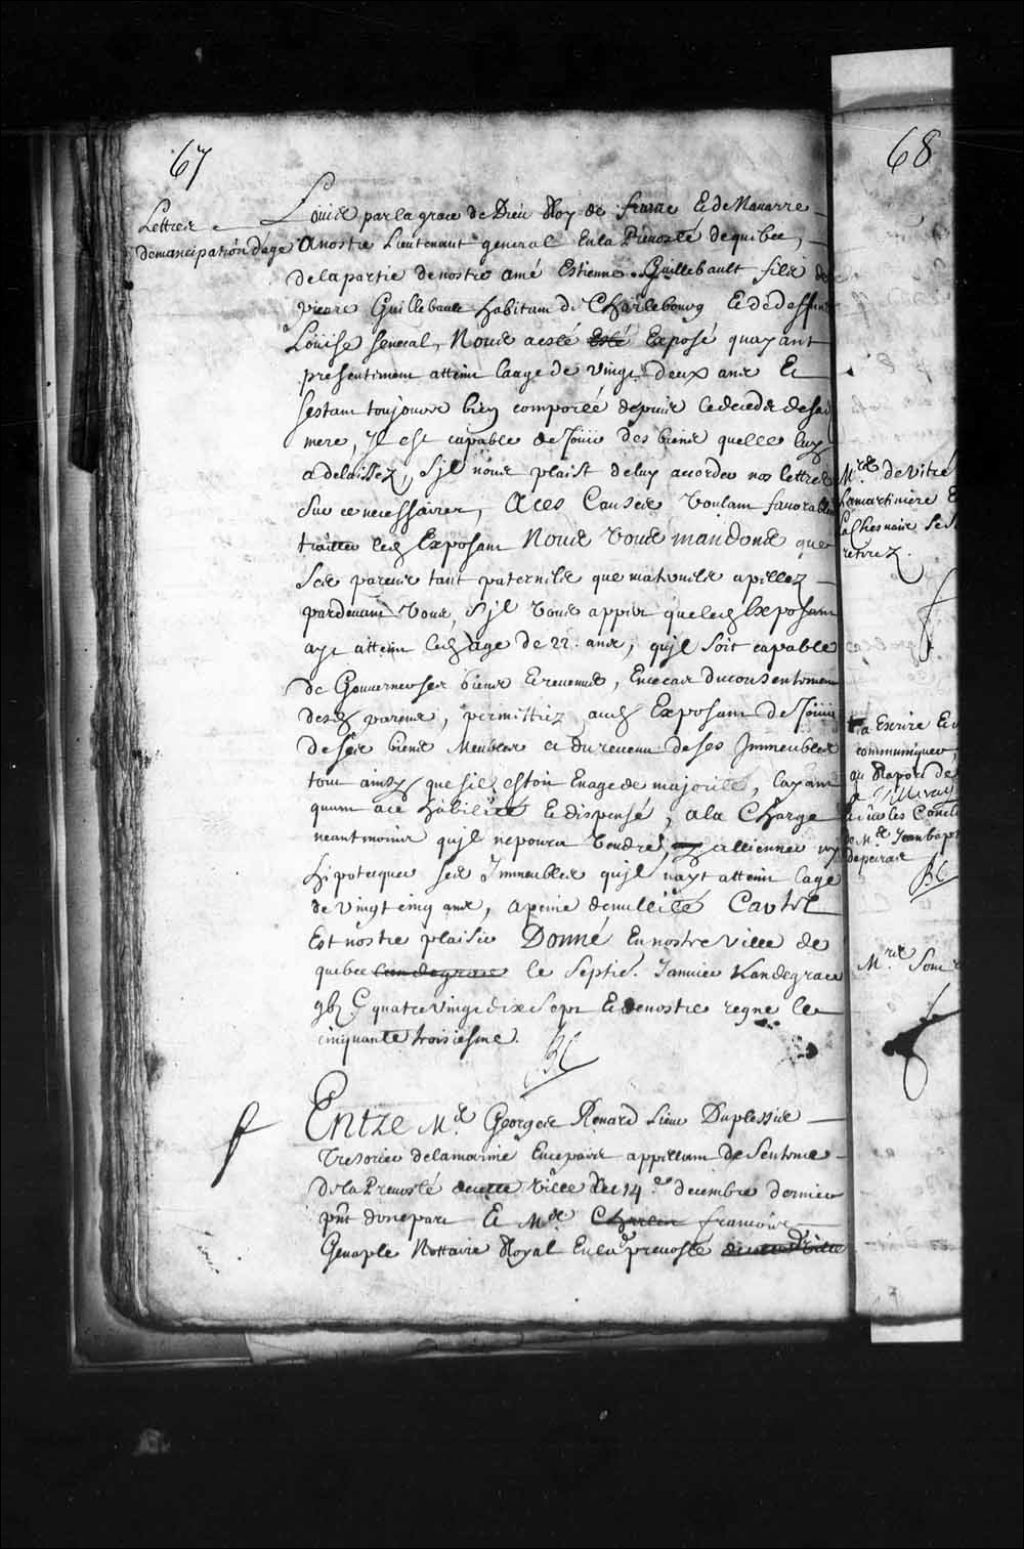 67
Lettres
demancipation dage
Louis par la grace de Dieu Roy de france Et de Nauarre
A nostre Lieutenant general En la Preuosté de quebec,
de la partie de nostre amé Estienne Guillebault fils de
pierre Guillebault habitant de Charlebourg Et de deffunte
Loüise Senecal, Nous a esté Esté Exposé quayant
presentement atteint laage de vingt deux ans Et
sestant toujours bien comporté depuis le deceds de sa
mere, Il est capable de Joüir des biens quelle luy
a delaissez, s'il nous plaist de luy accorder nos lettres
sur ce necessaires, A ces Causes Voulant fauorablem
traitter led Exposant Nous Vous mandons que
Ses parens tant paternels que maternels apellez
pardeuant Vous, s'il Vous appert que led Exposant
ayt atteint led age de 22. ans, quil soit capable
de Gouverner ses biens Et reuenus, En ce cas du consentement
desd parens, permettiez aud Exposant de Joüir
de ses biens Meubles et du reuenu de ses Immeubles
tout ainsy que sil estoit En age de majorité, layant
quant a ce habilité Et dispensé, a la Charge
neantmoins quil ne poura Vendre, alliener ny
hipotequer ses Immeubles quil nayt atteint lage
de vingt cinq ans, a peine de nullité Car tel
Est nostre plaisir Donné En nostre ville de
quebec lan de grace le Septie. Januier Lan de grace
gbj C quatre vingt dix sept Et de nostre regne le
cinquante troisiesme.
Entre Mr. Georges Renard Sieur Duplessis
Tresorier de la marine En ce païs appellant de Sentence
de la Preuosté de cette Ville du 14e. decembre dernier
pnt dune part Et Me Charles francois
Genaple Nottaire Royal En lad preuosté de cette Ville
68
Mrs. de Vitré
Lamartiniere E
La Chesnaie se s
retirez.
a Escrire Et
communiquer
au Raport de
les Concl
de Me Jean bapt
depeiras
Mrs Sont